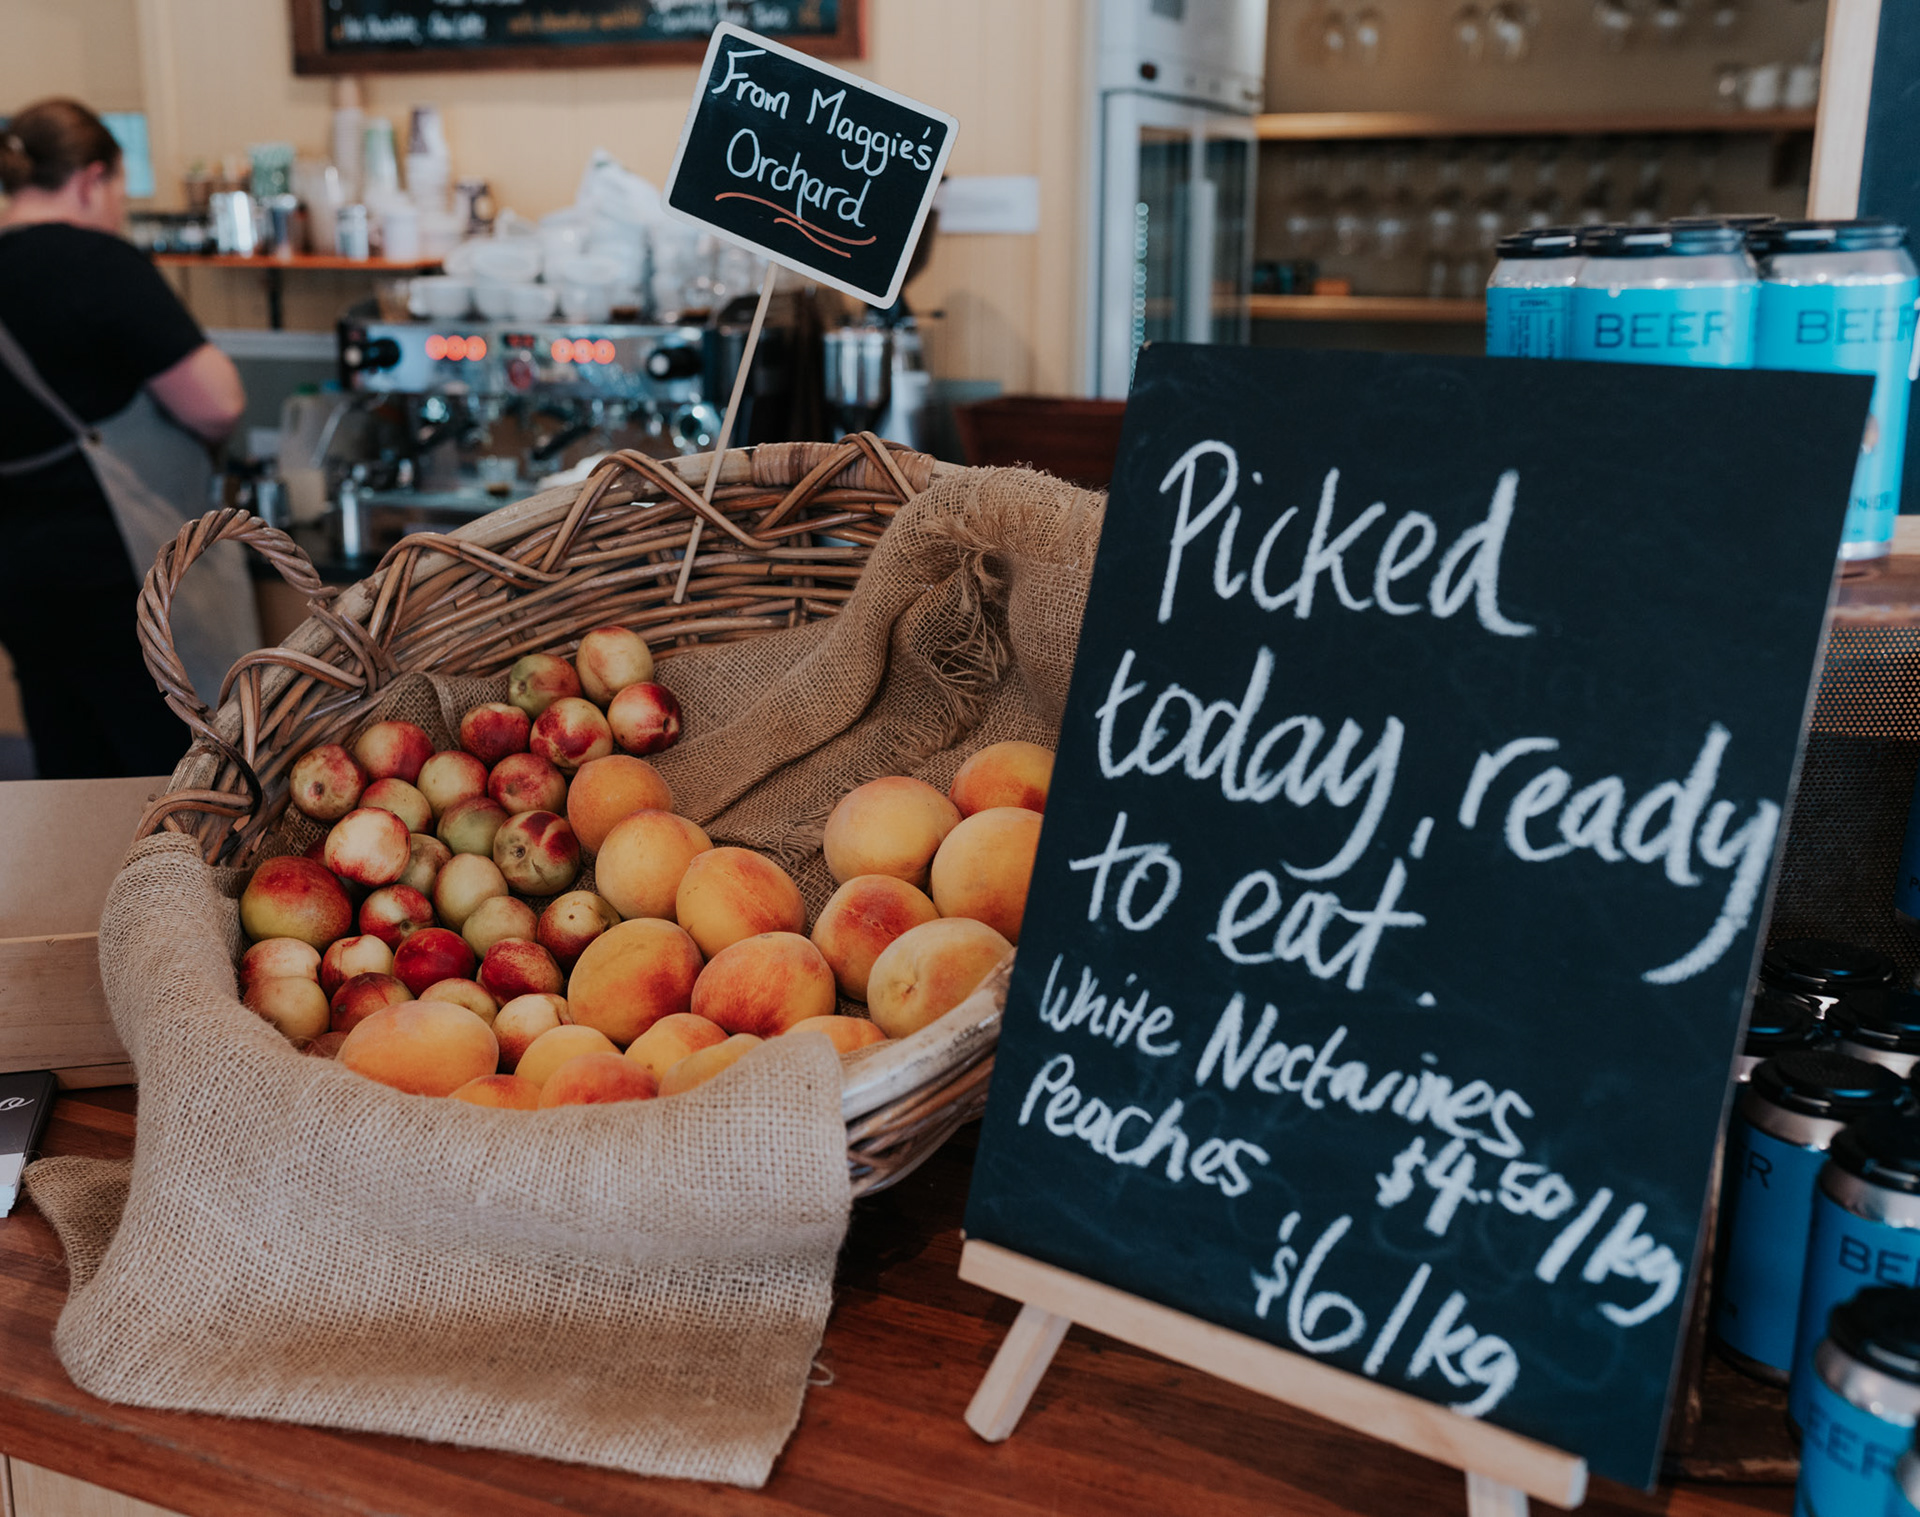 From Maggie's
Orchard
Picked
today, ready
to eat.
White Nectarines
$4.50/kg
Peaches
$6/kg
BEER
BEER
R
BE
EER